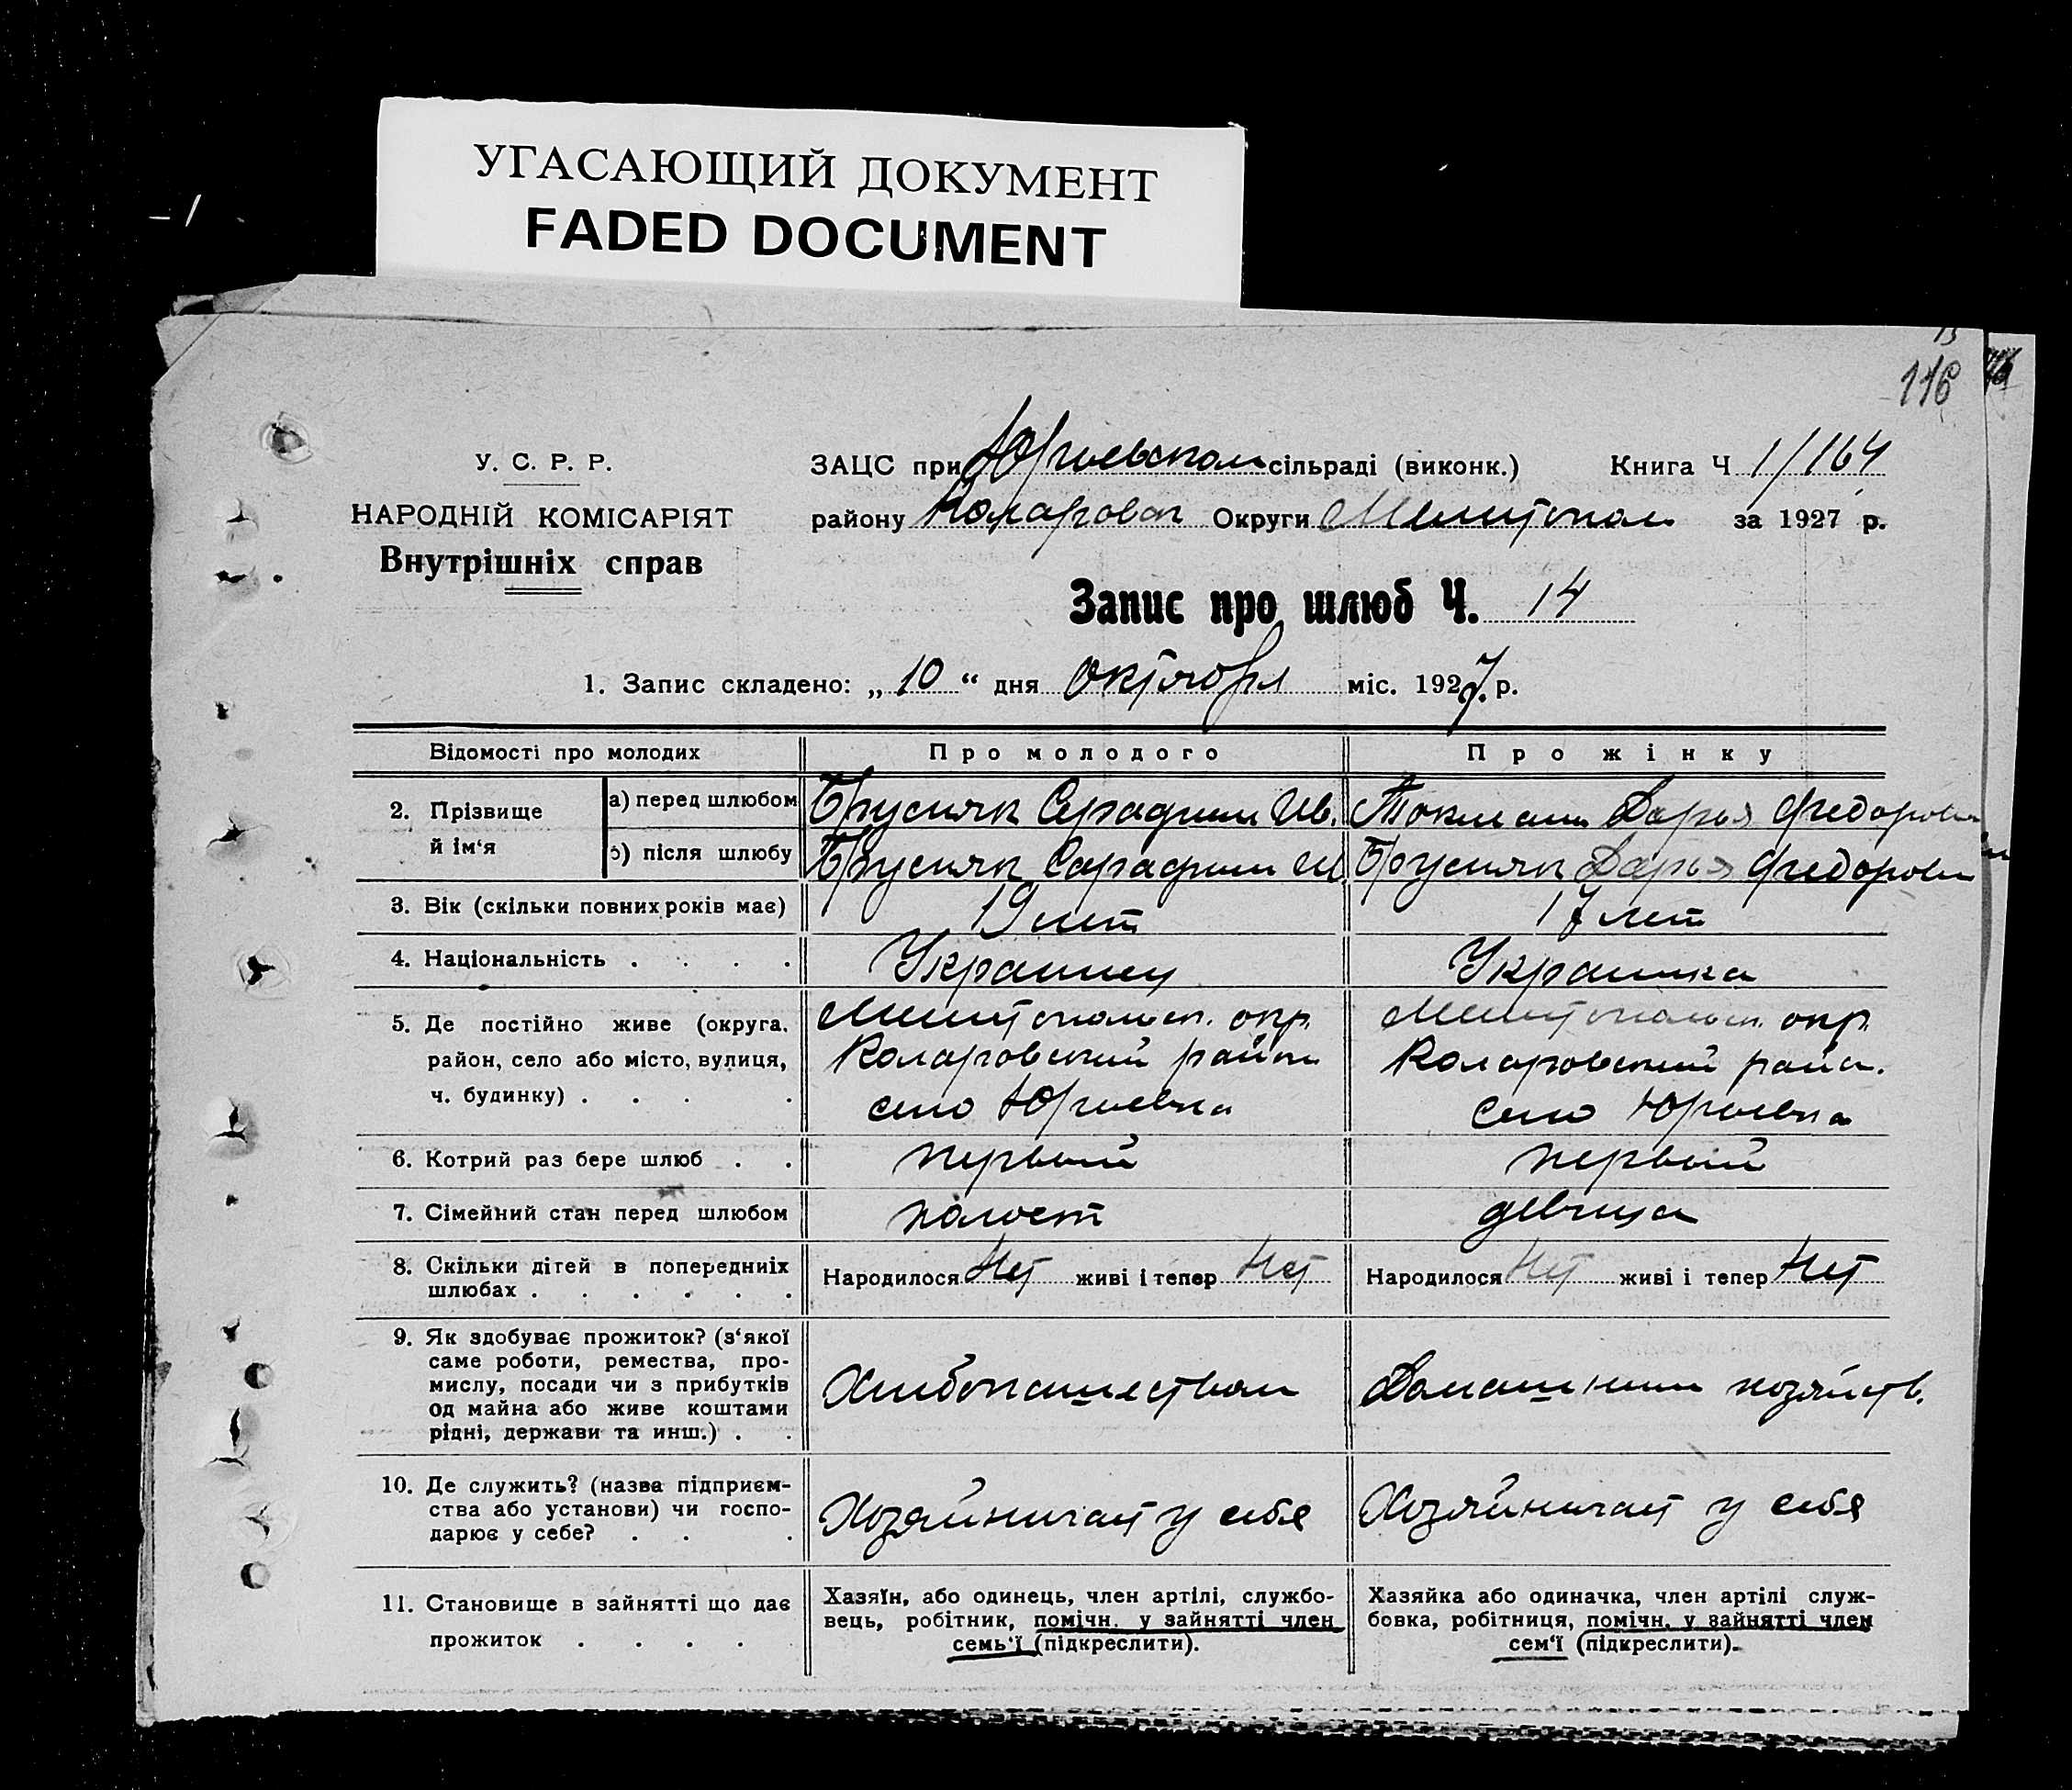 УГАСАЮЩИЙ ДОКУМЕНТ
FADED DOCUMENT
116
У. С. Р. Р.
НАРОДНІЙ КОМІСАРІЯТ
Внутрішніх справ
ЗАЦС при Юрьевском сільраді (виконк.) Книга Ч 1/164
району Коларовск Округи Мелитопол за 1927 р.
Запис про шлюб Ч. 14
1. Запис складено: „ 10 “ дня Октября міс. 1927 р.
Відомості про молодих Про молодого Про жінку
2. Прізвище й ім‘я
а) перед шлюбом Брусняк Серафим Ив. Токмань Дарья Федоровн
б) після шлюбу Брусняк Сарафим И. Брусняк Дарья Федоровн
3. Вік (скільки повних років має) 19 лет 17 лет
4. Національність . . . . Украинец Украинка
5. Де постійно живе (округа, Мелитопольск. окр. Мелитопольск. окр.
район, село або місто, вулиця, Коларовский район Коларовский район.
ч. будинку) . . . . село Юрьевка село Юрьевка
6. Котрий раз бере шлюб . . первый первый
7. Сімейний стан перед шлюбом холост девица
8. Скільки дітей в попередниіх
шлюбах . . . . . . Народилося Нет живі і тепер Нет Народилося Нет живі і тепер Нет
9. Як здобуває прожиток? (з‘якої
саме роботи, ремества, про-
мислу, посади чи з прибутків Хлебопашеством Домашним хозяйств.
од майна або живе коштами
рідні, держави та инш.) . .
10. Де служить? (назва підприєм-
ства або установи) чи госпо- Хозяйничает у себя Хозяйничает у себя
дарює у себе? . . .
11. Становище в зайнятті що дає
прожиток . . . .
Хазяїн, або одинець, член артілі, службо-
вець, робітник, помічн. у зайнятті член
семь‘ї (підкреслити).
Хазяйка або одиначка, член артілі служ-
бовка, робітниця, помічн. у зайнятті член
сем‘ї (підкреслити).